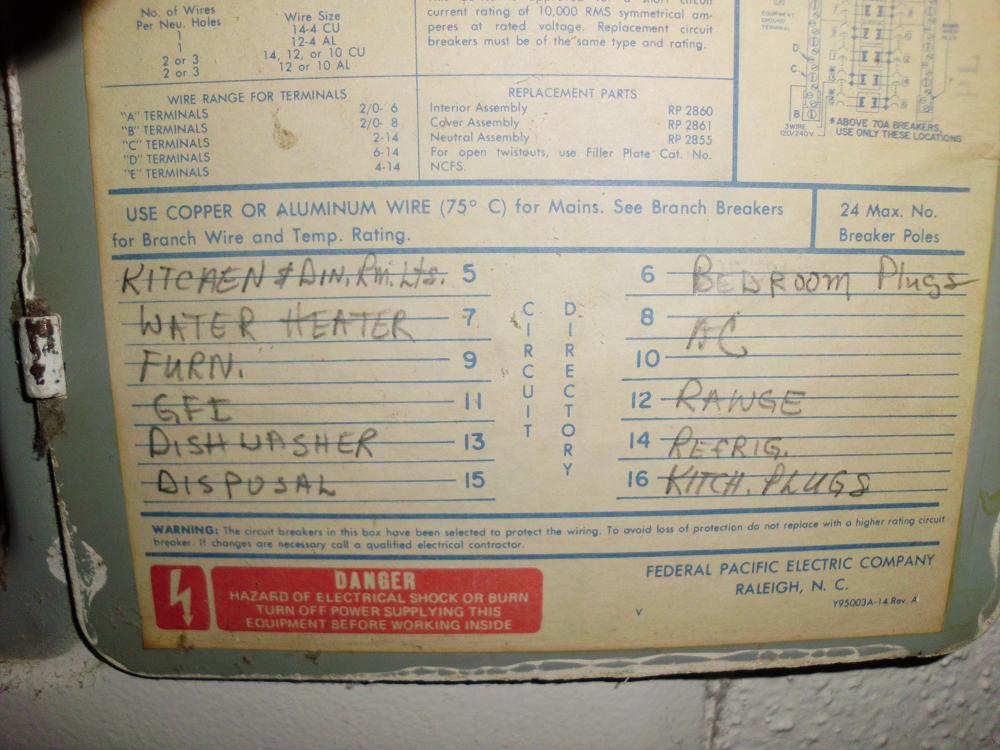 No. of Wires Per Neu. Holes
Wire Size
1 14-4 CU
1 12-4 AL
2 or 3 14, 12, or 10 CU
2 or 3 12 or 10 AL
current rating of 10,000 RMS symmetrical am-
peres at rated voltage. Replacement circuit
breakers must be of the same type and rating.
EQUIPMENT
GROUND
TERMINAL
D
C
B
3WIRE
120/240V
*ABOVE 70A BREAKERS,
USE ONLY THESE LOCATIONS
WIRE RANGE FOR TERMINALS
"A" TERMINALS 2/0- 6
"B" TERMINALS 2/0- 8
"C" TERMINALS 2-14
"D" TERMINALS 6-14
"E" TERMINALS 4-14
REPLACEMENT PARTS
Interior Assembly RP 2860
Cover Assembly RP 2861
Neutral Assembly RP 2855
For open twistouts, use Filler Plate Cat. No.
NCFS.
USE COPPER OR ALUMINUM WIRE (75° C) for Mains. See Branch Breakers
for Branch Wire and Temp. Rating.
24 Max. No.
Breaker Poles
KITCHEN & DIN. Rm. Lts. 5
WATER HEATER 7
FURN. 9
GFI 11
DISHWASHER 13
DISPOSAL 15
CIRCUIT
DIRECTORY
6 BEDROOM Plugs
8
AC
10
12 RANGE
14 REFRIG.
16 KITCH. PLUGS
WARNING: The circuit breakers in this box have been selected to protect the wiring. To avoid loss of protection do not replace with a higher rating circuit
breaker. If changes are necessary call a qualified electrical contractor.
DANGER
HAZARD OF ELECTRICAL SHOCK OR BURN
TURN OFF POWER SUPPLYING THIS
EQUIPMENT BEFORE WORKING INSIDE
FEDERAL PACIFIC ELECTRIC COMPANY
RALEIGH, N. C.
V
Y95003A-14 Rev. A